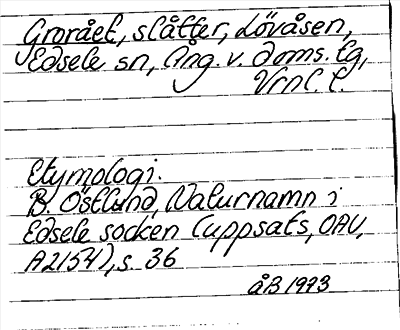 Grorået, slåtter, Lövåsen,
Edsele sn, Ång. v. doms. tg,
Vrnl. l.
Etymologi.
B. Östlund, Naturnamn i
Edsele socken (uppsats, OAU,
A2154), s. 36
åB 1993